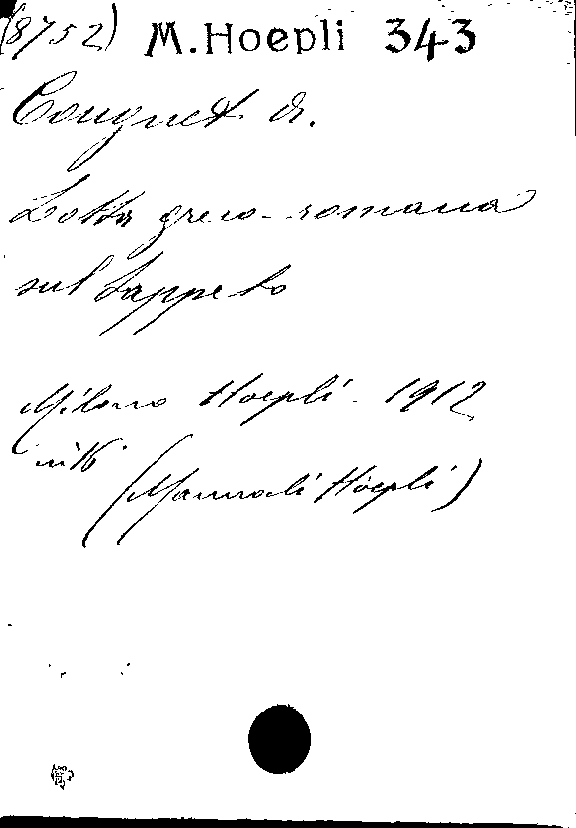 (8752) M.Hoepli 343
Cougnet A.
Lotta greco-romana
sul tappeto
Milano Hoepli - 1912
in 16°
(Manuali Hoepli)